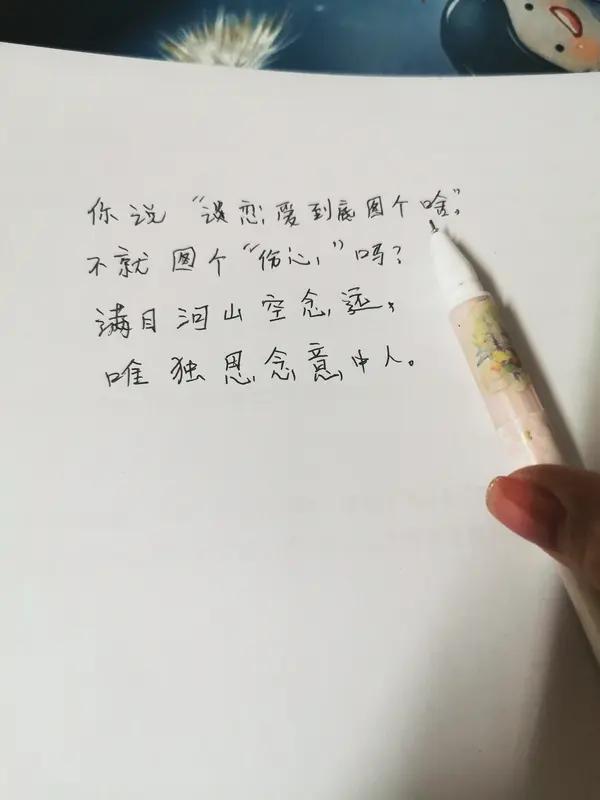 你说“谈恋爱到底图个啥”,
不就图个“伤心”吗?
满目河山空念远,
唯独思念意中人。